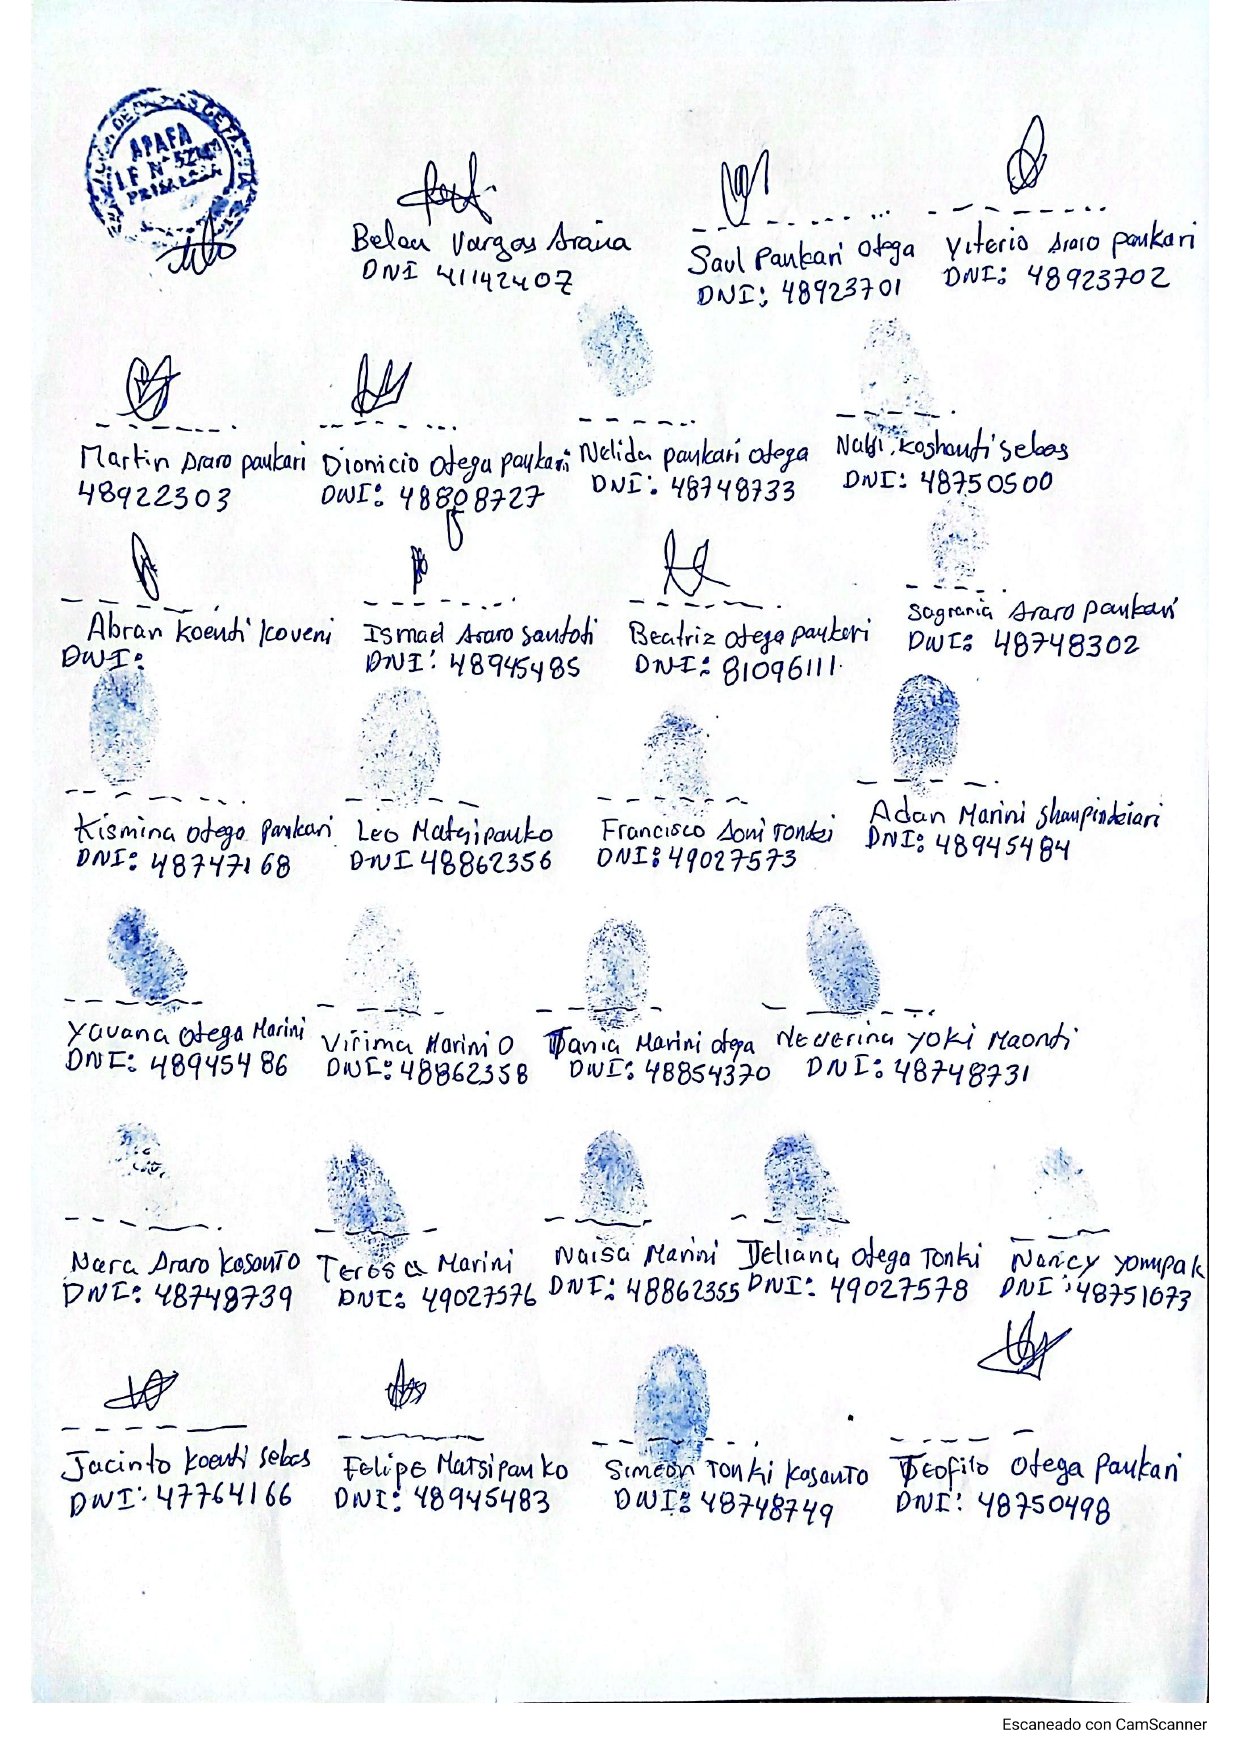 APAFA
I.F N° 52
PRIMARIA
Belau Vargas Araña
DNI 41142407
Saul Paukari Otega
DNI: 48923701
Viterio Araro Paukari
DNI: 48923702
Martin Araro paukari
48922303
Dionicio Otega paukari
DNI: 48808727
Nelida paukari otega
DNI: 48748733
Koshanti Sebas
DNI: 48750500
Abran Koenti Koveni
DNI:
Ismael Araro Santoti
DNI: 48945485
Beatriz otega paukari
DNI: 81096111
Sagrania Araro paukari
DNI: 48748302
Kismina otega paukari
DNI: 48747168
Leo Matsipauko
DNI 48862356
Francisco Aoni Tonkei
DNI: 49027573
Adan Marini
DNI: 48945484
Yovana Otega Marini
DNI: 48945486
Virima Marini O
DNI: 48862358
Tania Marini otega
DNI: 48854370
Neverina Yoki Maonti
DNI: 48748731
Nara Araro Kosanto
DNI: 48748739
Teresa Marini
DNI: 49027576
Naisa Marini
DNI: 48862355
Jeliana Otega Tonki
DNI: 49027578
Nancy Yompak
DNI: 48751073
Jacinto Koenti Sebas
DNI: 47764166
Felipe Matsipauko
DNI: 48945483
Simeón Tonki Kosanto
DNI: 48748749
Teofilo Otega Paukari
DNI: 48750498
Escaneado con CamScanner